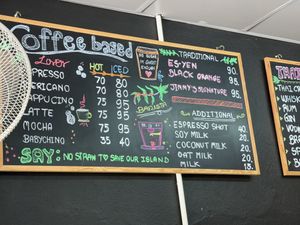 Coffee based
Lover
HOT ICED
ESPRESSO 70 80
ERICANO 70 80
APPUCINO 75 95
LATTE 75 95
MOCHA 75 95
BABYCHINO 35 40
SAY NO STRAW TO SAVE OUR ISLAND
BARISTA
TRADITIONAL
ES-YEN 90.
BLACK ORANGE 95.
JIMMY'S SIGNATURE
ADDITIONAL
ESPRESSO SHOT 40
SOY MILK 20.
COCONUT MILK 20.
OAT MILK 20.
MILK 15.
THAI
WHISK
RUM
GIN
VOD